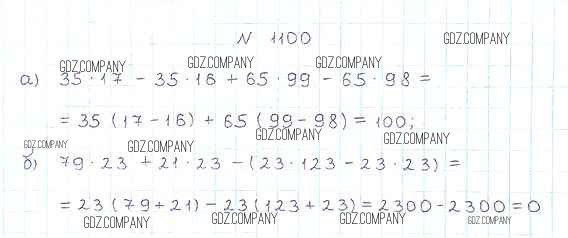 N 1100
GDZ.COMPANY
GDZ.COMPANY
GDZ.COMPANY
GDZ.COMPANY
а) 35·17 - 35·16 + 65·99 - 65·98 =
= 35 (17-16) + 65 (99-98) = 100;
GDZ.COMPANY
GDZ.COMPANY
GDZ.COMPANY
GDZ.COMPANY
б) 79·23 + 21·23 - (23·123 - 23·23) =
= 23 (79+21) - 23 (123+23) = 2300-2300=0
GDZ.COMPANY
GDZ.COMPANY
GDZ.COMPANY
GDZ.COMPANY